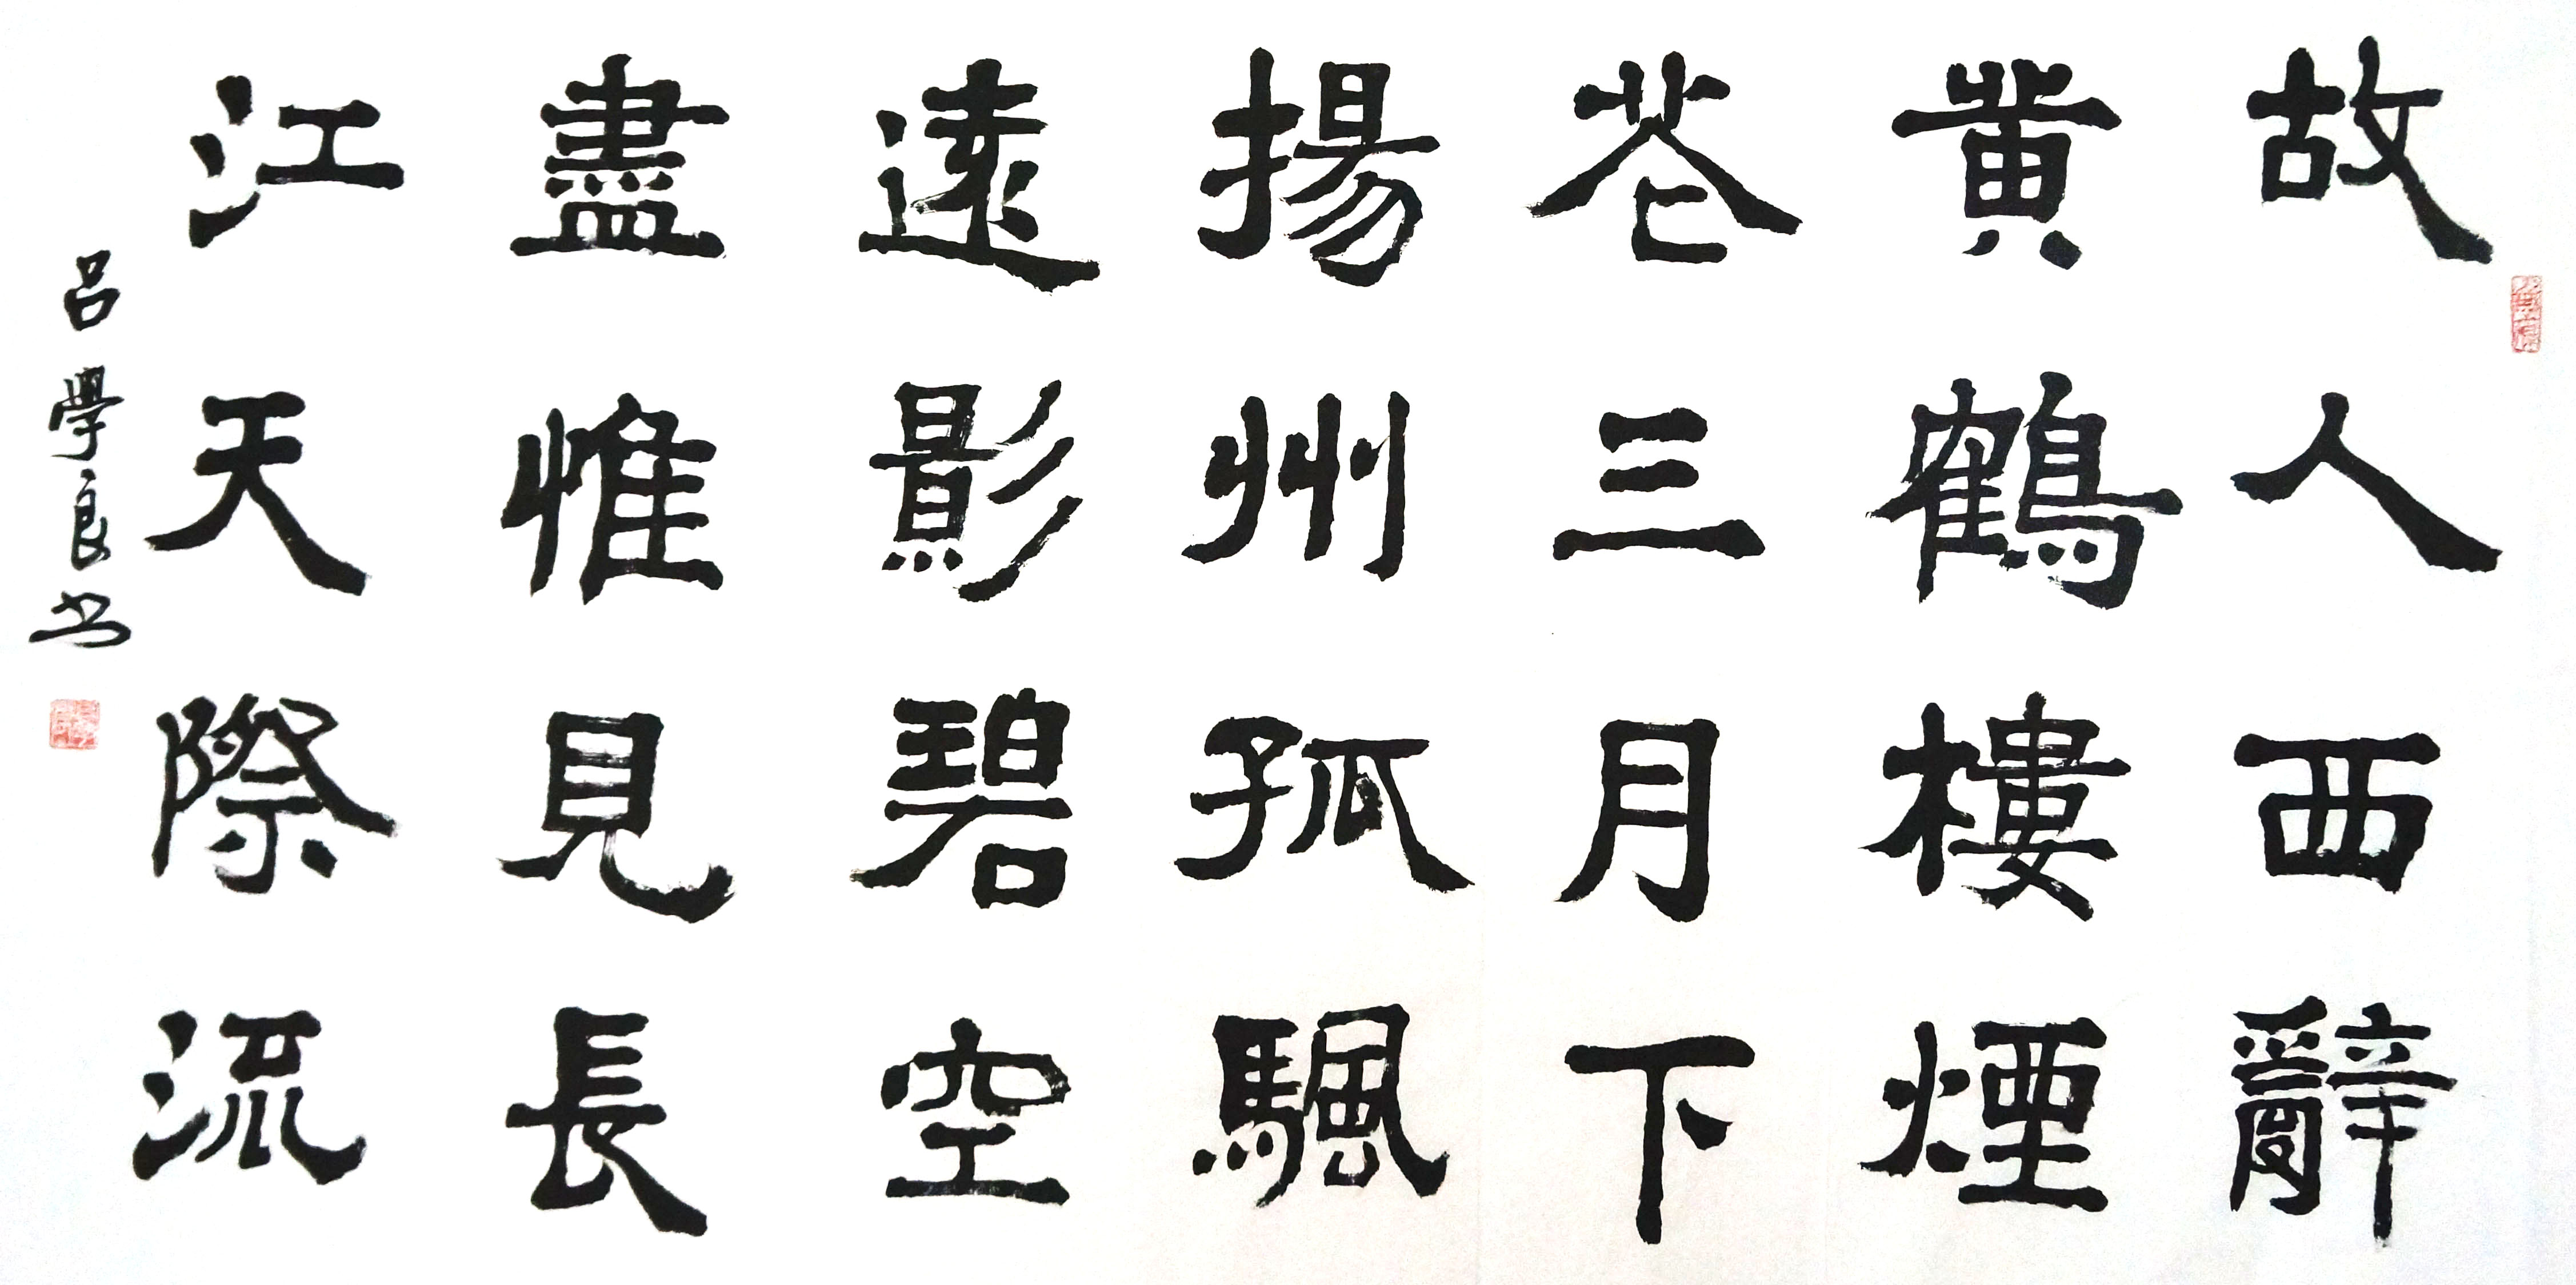 故人西辭
黄鶴樓煙
苍三月下
揚州孤颿
遠影碧空
盡惟見長
江天際流
吕學良书